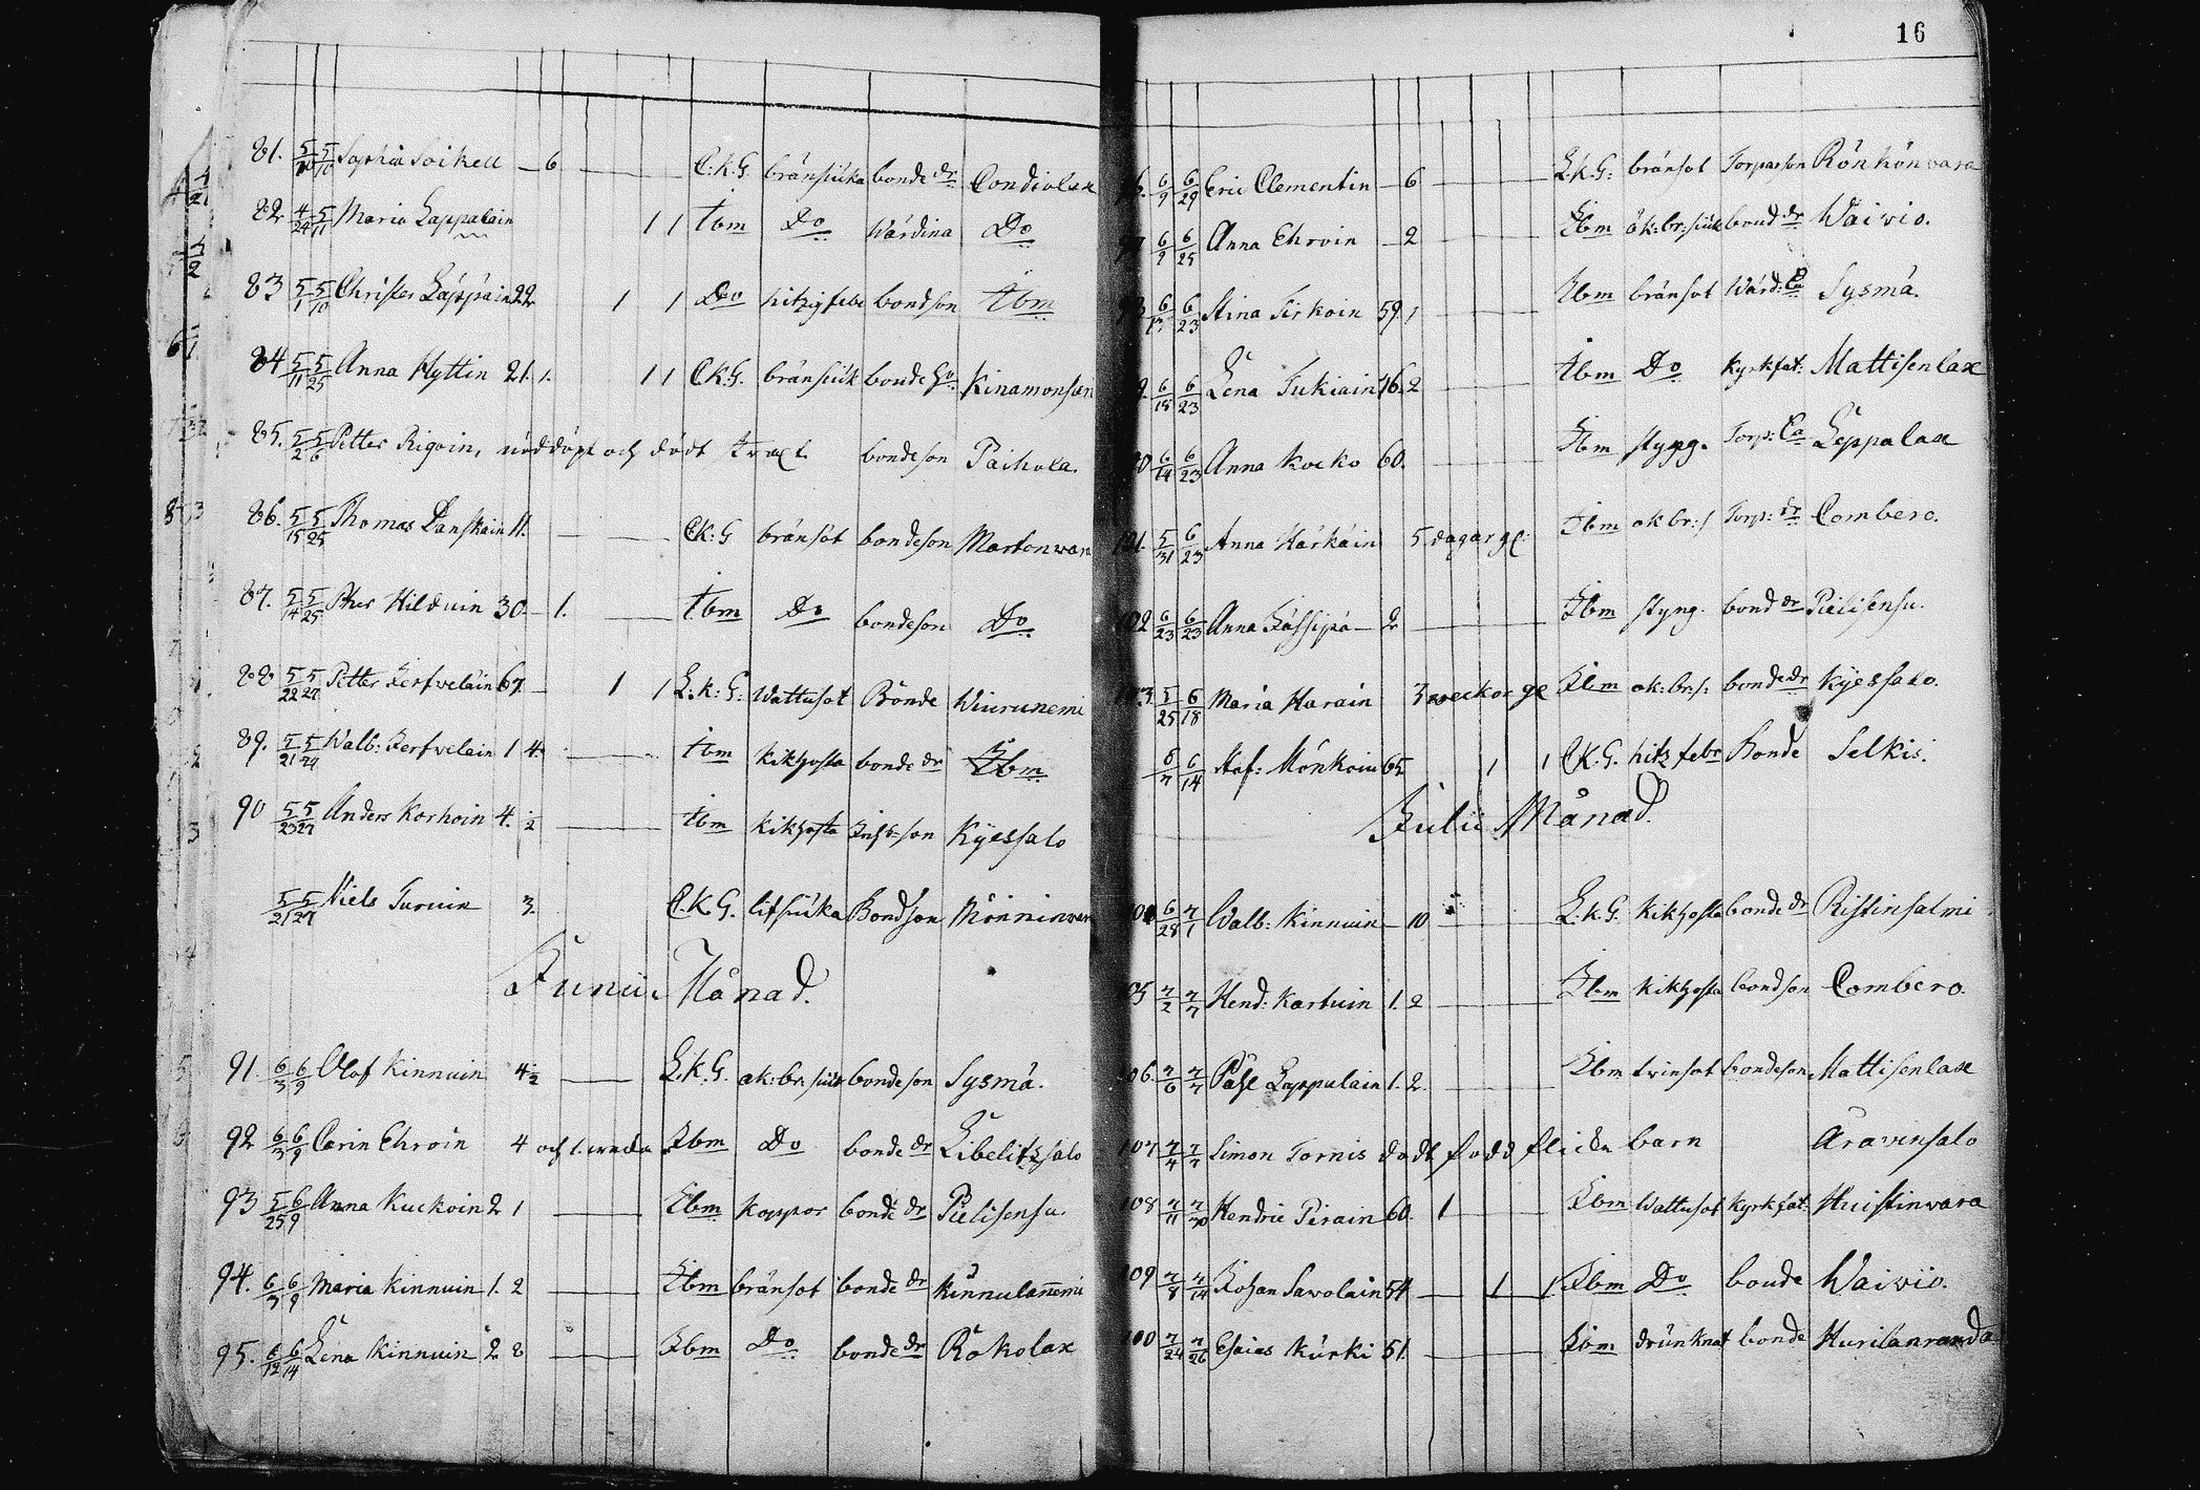 81. 5/10 5/10 Sophia Soikell — 6 — C:K:G. bränsiúka bonde dr Condiolax
82 4/24 5/11 Maria Lappalain 1 1 Ibm Do Wärdina Do
83 5/1 5/10 Christer Läppäin 22 1 1 Do hitzig febe bondson Ibm
84 5/11 5/25 Anna Hyttin 21. 1. 1 1 C.K:G. bränsiúk bonde Kinamonsari
85. 5/2 5/6 Petter Rigoin, nöddöpt och dödt bondeson Paihola.
86. 5/15 5/25 Thomas Danskain 11. — C.K:G bränsot bondeson Martonwara
87. 5/14 5/25 Pher Hilduin 30 — 1. — Ibm Do bondeson Do
88 5/22 5/27 Petter Ierfwelain 67. — 1 1 L:K:G: Wattusot Bonde Wiurunemi
89. 5/21 5/24 Walb: Ierfwelain 1 4. — Ibm Kikhosta bonde dr Ibm
90 5/23 5/27 Anders Korhoin 4. ½ — Ibm Kikhosta Inh:son Kÿessalo
5/21 5/27 Niels Turuin 3. C.K.G. litsiúka Bondson Mönninwara
Junii Månad.
91. 6/3 6/9 Olof Kinnuin 4 ½ — L.K.G. ok:br.siúk bondeson Sysmä.
92 6/3 6/9 Carin Ehroin 4 och 1. wecka Ibm Do bonde dr Libelitzsalo
93 5/25 6/9 Anna Kuckoin 2 1 — Ibm koppor bonde dr Pielisensu.
94. 6/3 6/9 Maria Kinnuin 1. 2 — Ibm bränsot bonde dr Kinnulanemi
95. 6/12 6/14 Lena Kinnuin 2 8 — Ibm Do bonde dr Rokolax
16
6. 6/9 6/29 Eric Clementin — 6 — L.K.G: bränsot Torparson Rönkönvara
97 6/9 6/25 Anna Ehroin — 2 — Ibm ok:br:siúk bond dr Waivio.
6/13 6/23 Stina Sirkoin 59. 1 — Ibm bränsot Wärd: Sysmä.
9. 6/18 6/23 Lena Tukiain 16. 2 — Ibm Do Kyrkfat: Mattisenlax
6/14 6/23 Anna Kocko 60. — Ibm styng. Torp: Leppalax
101. 5/31 6/23 Anna Härkäin 5 dagar gl: Ibm ok br:s Torp: dr Combero.
102 6/23 6/23 Anna — 2 — Ibm styng. bond dr Pielisensu.
103. 5/25 6/18 Maria Harain 3 weckor gl Ibm ok:br:s: bonde dr Kÿessalo.
6/7 6/14 Staf: Mönkoin 65 1 1 C.K.G. hitz febr Bonde Selkis.
Julii Månad.
104 6/28 7/1 Walb: Kinnuin — 10 — L.K.G. Kikhosta bonde dr Ristinsalmi
105 7/2 7/7 Hend: Kartuin 1. 2 — Ibm Kikhosta bondson Combero.
106. 7/6 7/7 Påhl Lappalain 1. 2. — Ibm tvinsot bondeson Mattisenlax
107 7/4 7/7 Simon Tornis dödt född flicke barn Aravinsalo
108 7/11 Hendric Pirain 60. 1 — Ibm Wattusot Kyrkfat: Huistinwara
109 7/8 7/14 Johan Savolain 54 — 1 1 Ibm Do bonde Waivio.
100 7/24 7/26 Esaias Kúrki 51. — Ibm drúnknat bonde Hurilanranda